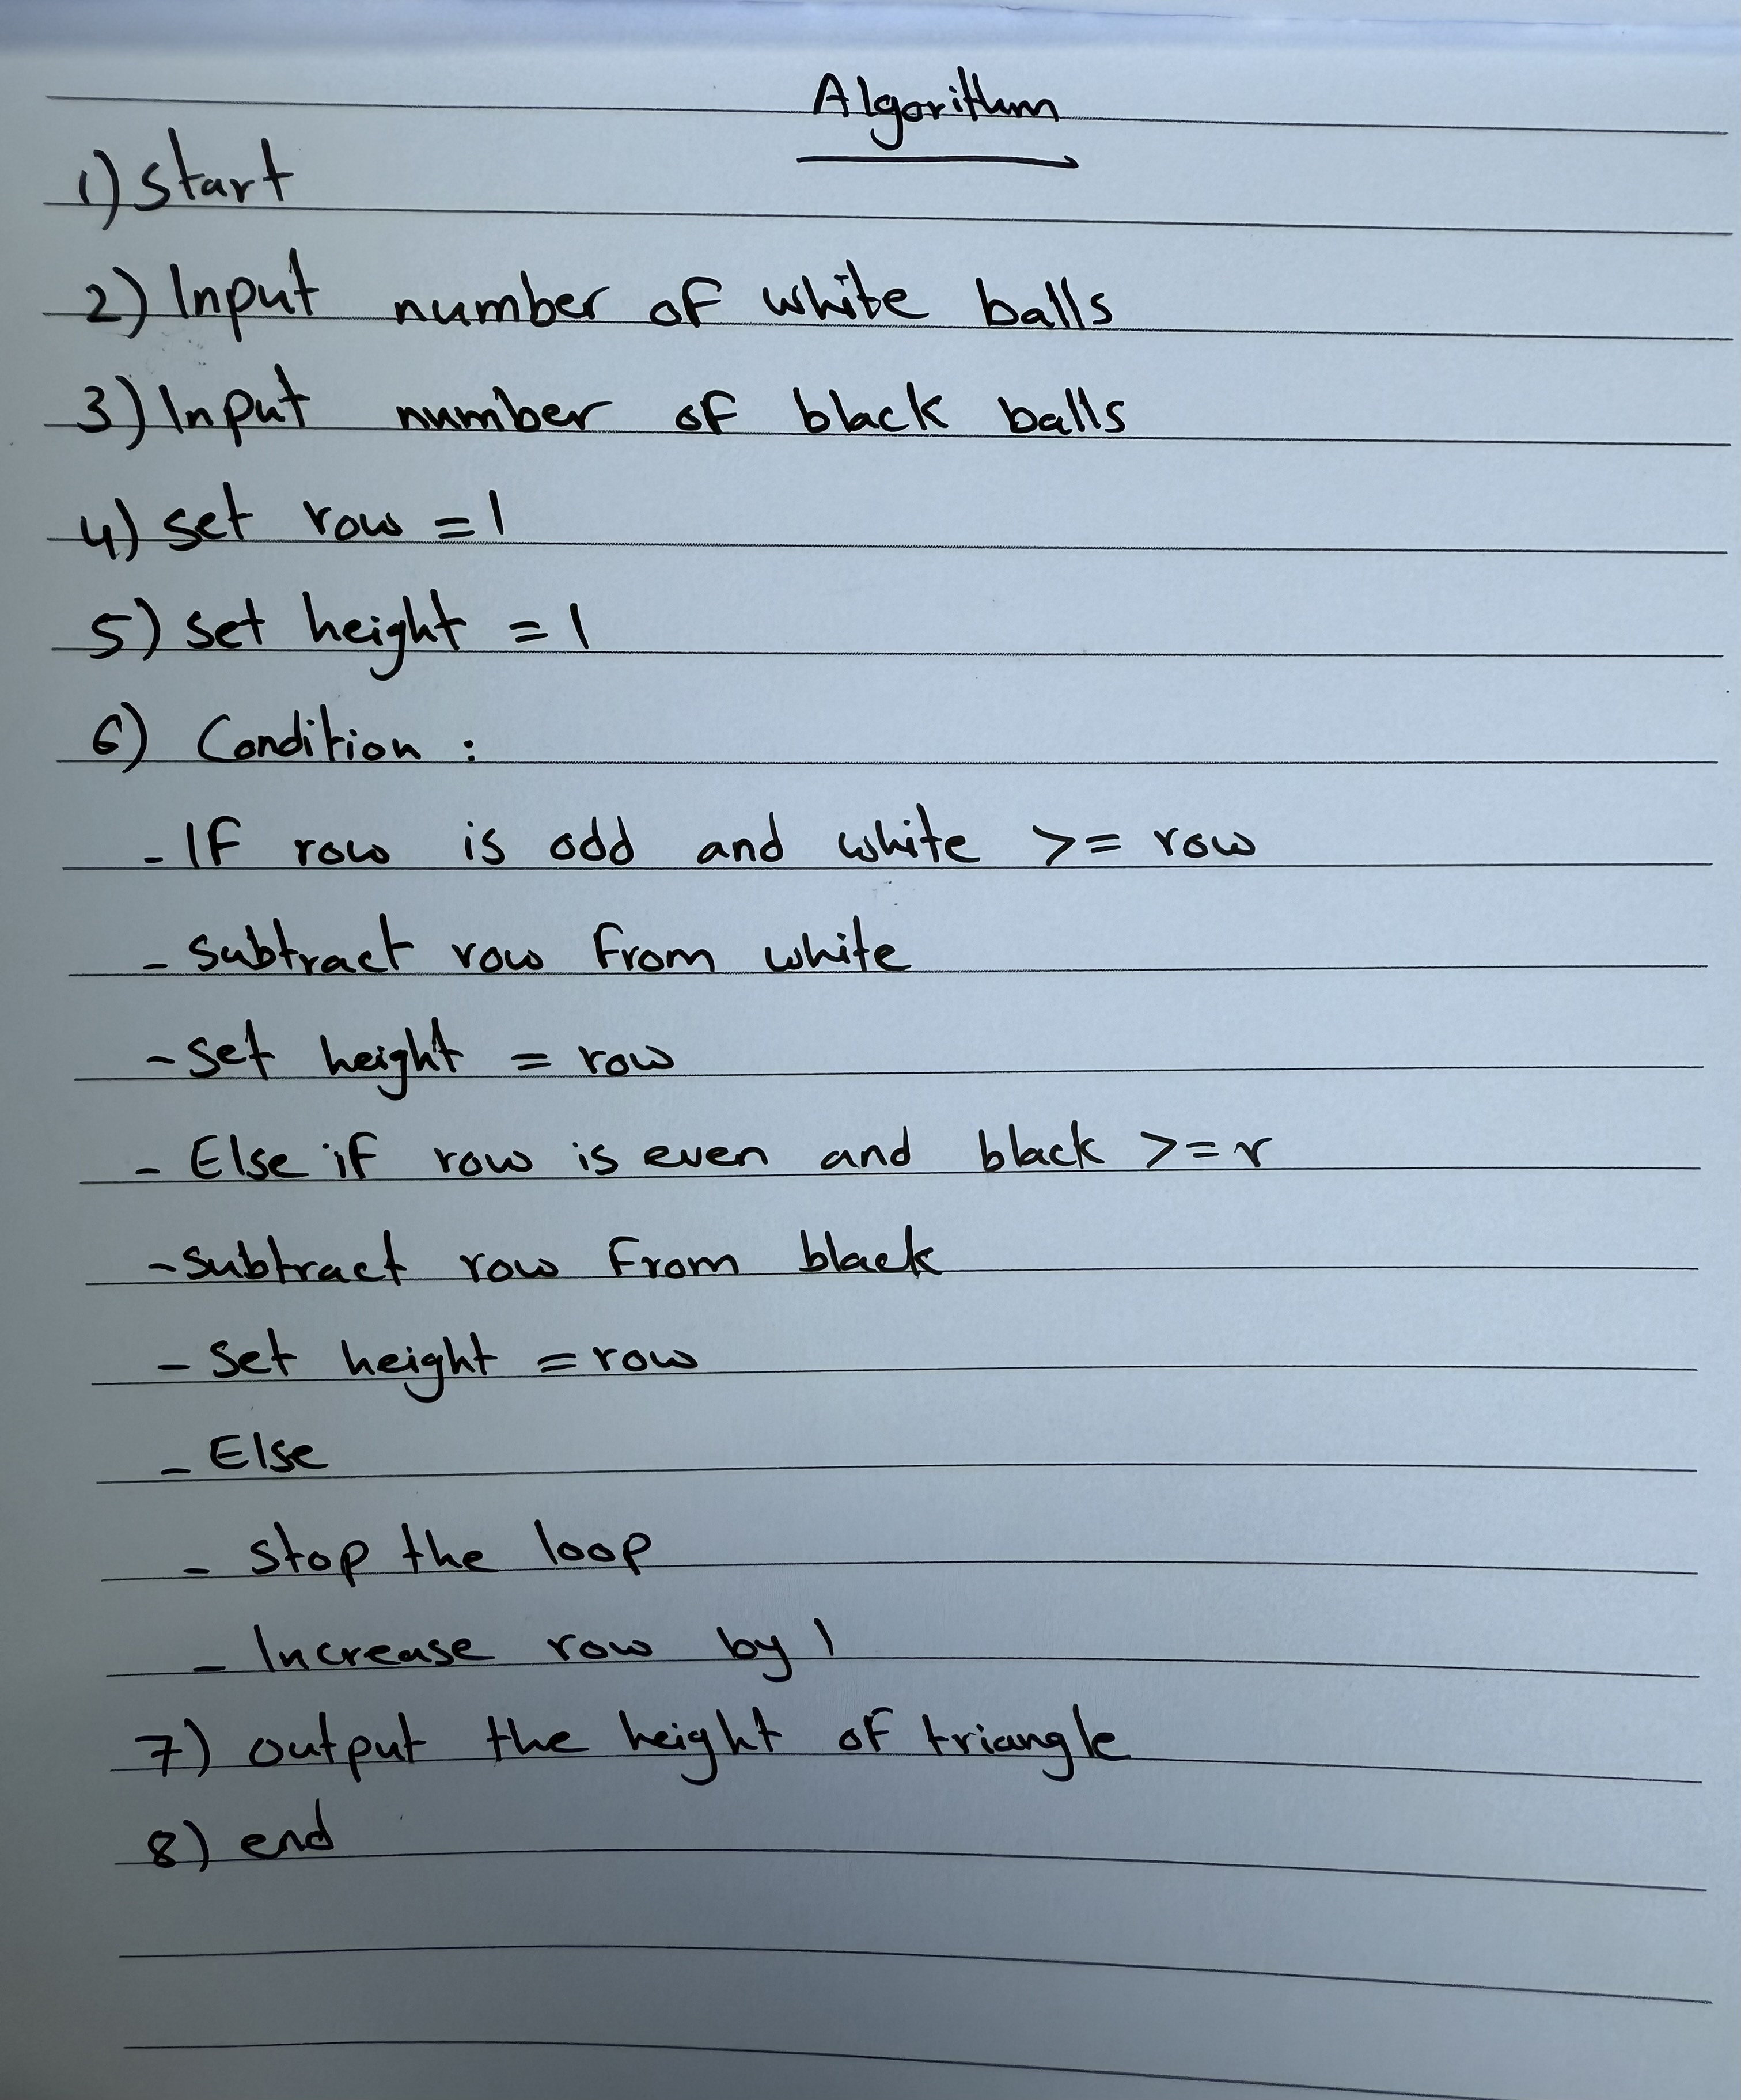 Algorithm
1) Start
2) Input number of white balls
3) Input number of black balls
4) set row = 1
5) set height = 1
6) Condition :
- If row is odd and white >= row
- subtract row from white
- set height = row
- Else if row is even and black >= r
- subtract row from black
- set height = row
- Else
- stop the loop
- Increase row by 1
7) output the height of triangle
8) end